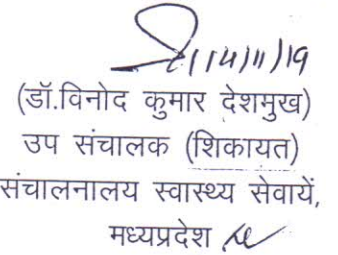 14/11/19
(डॉ.विनोद कुमार देशमुख)
उप संचालक (शिकायत)
संचालनालय स्वास्थ्य सेवायें,
मध्यप्रदेश